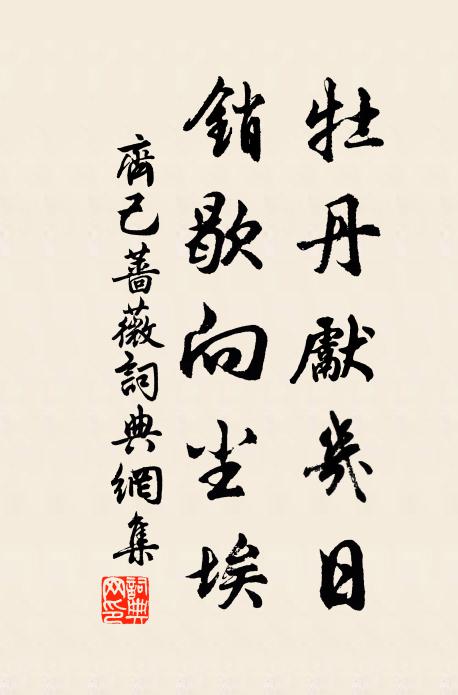 牡丹獻幾日
銷歇向尘埃
齊己薔薇詞典網集
詞典
网印